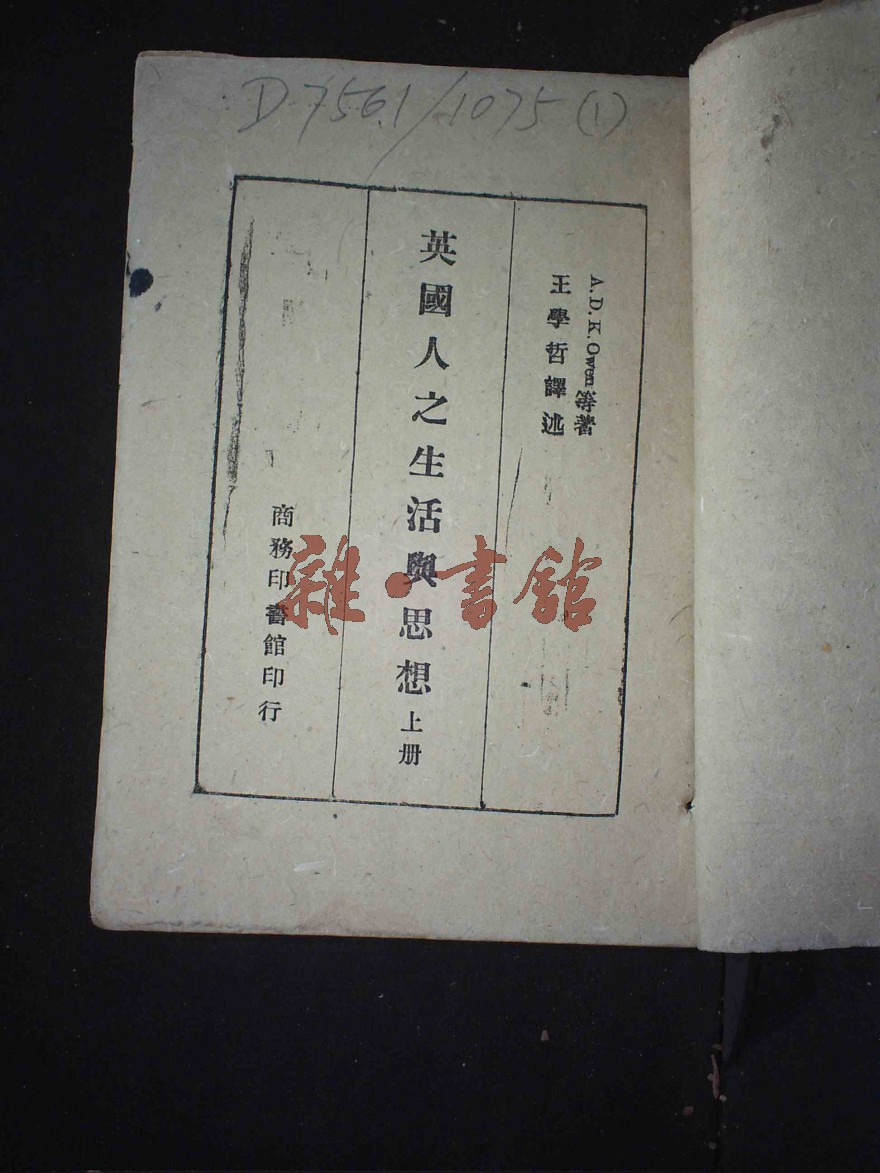 D756.1/1075(1)
A. D. K. Owen 等著
王學哲譯述
英國人之生活與思想 上册
商務印書館印行
雜·書館